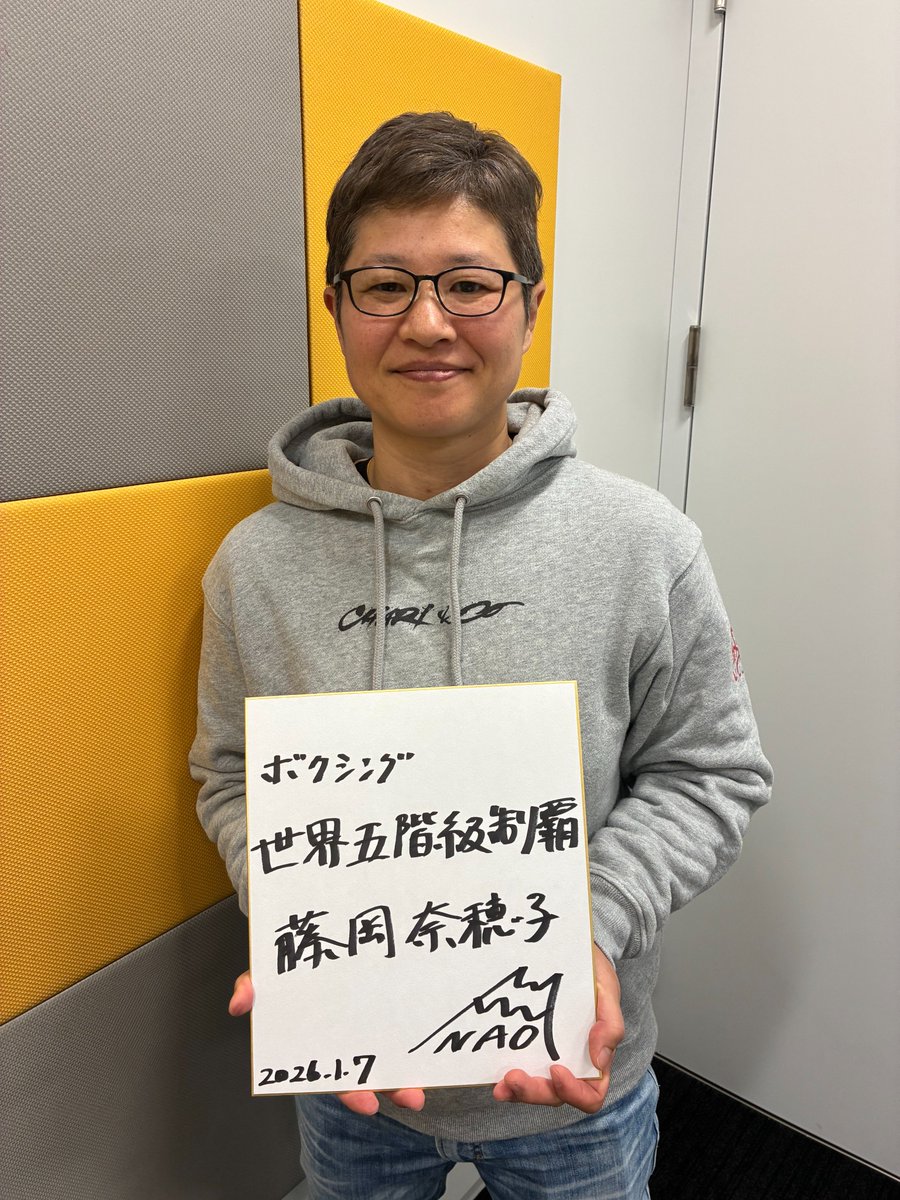 ボクシング
世界五階級制覇
藤岡奈穂子
NAO
2026.1.7